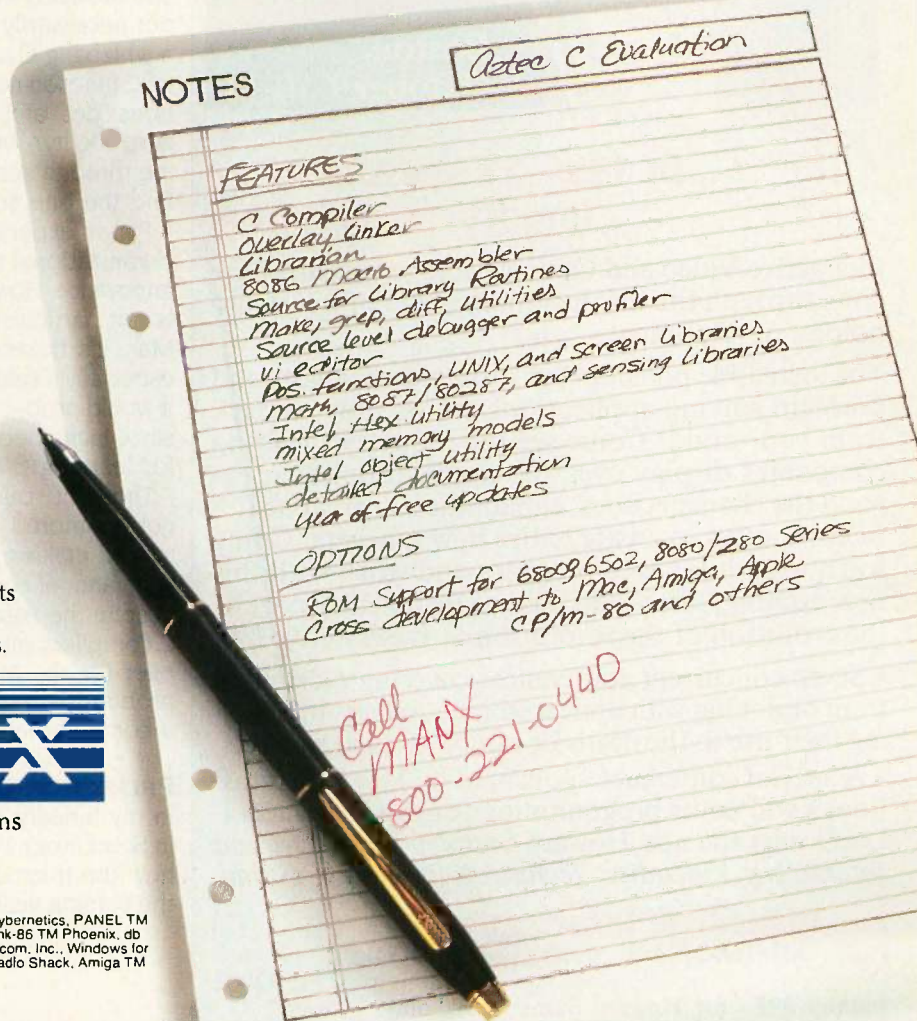 NOTES
Aztec C Evaluation
FEATURES
C Compiler
Overlay Linker
Librarian
8086 Macro Assembler
Source for Library Routines
Make, grep, diff, utilities
Source level debugger and profiler
vi editor
Dos. functions, UNIX, and Screen Libraries
Math, 8087/80287, and sensing Libraries
Intel Hex utility
mixed memory models
Intel object utility
detailed documentation
year of free updates
OPTIONS
ROM Support for 68000, 6502, 8080/Z80 Series
Cross development to Mac, Amiga, Apple
CP/M-80 and others
Call
MANX
800-221-0440
ts
s.
X
ms
ybernetics, PANEL TM
nk-86 TM Phoenix, db
com, Inc., Windows for
adio Shack, Amiga TM